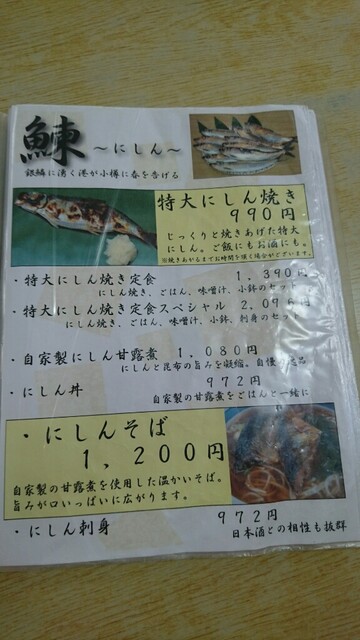 鰊 ～にしん～
銀鱗に湧く港が小樽に春を告げる
特大にしん焼き
990円
じっくりと焼きあげた特大
にしん。ご飯にもお酒にも。
※焼きあがるまでお時間を頂く場合がございます。
・特大にしん焼き定食 1,390円
にしん焼き、ごはん、味噌汁、小鉢のセット
・特大にしん焼き定食スペシャル 2,096円
にしん焼き、ごはん、味噌汁、小鉢、刺身のセット
・自家製にしん甘露煮 1,080円
にしんと昆布の旨みを凝縮。自慢の逸品
・にしん丼 972円
自家製の甘露煮をごはんと一緒に
・にしんそば
1,200円
自家製の甘露煮を使用した温かいそば。
旨みが口いっぱいに広がります。
・にしん刺身 972円
日本酒との相性も抜群